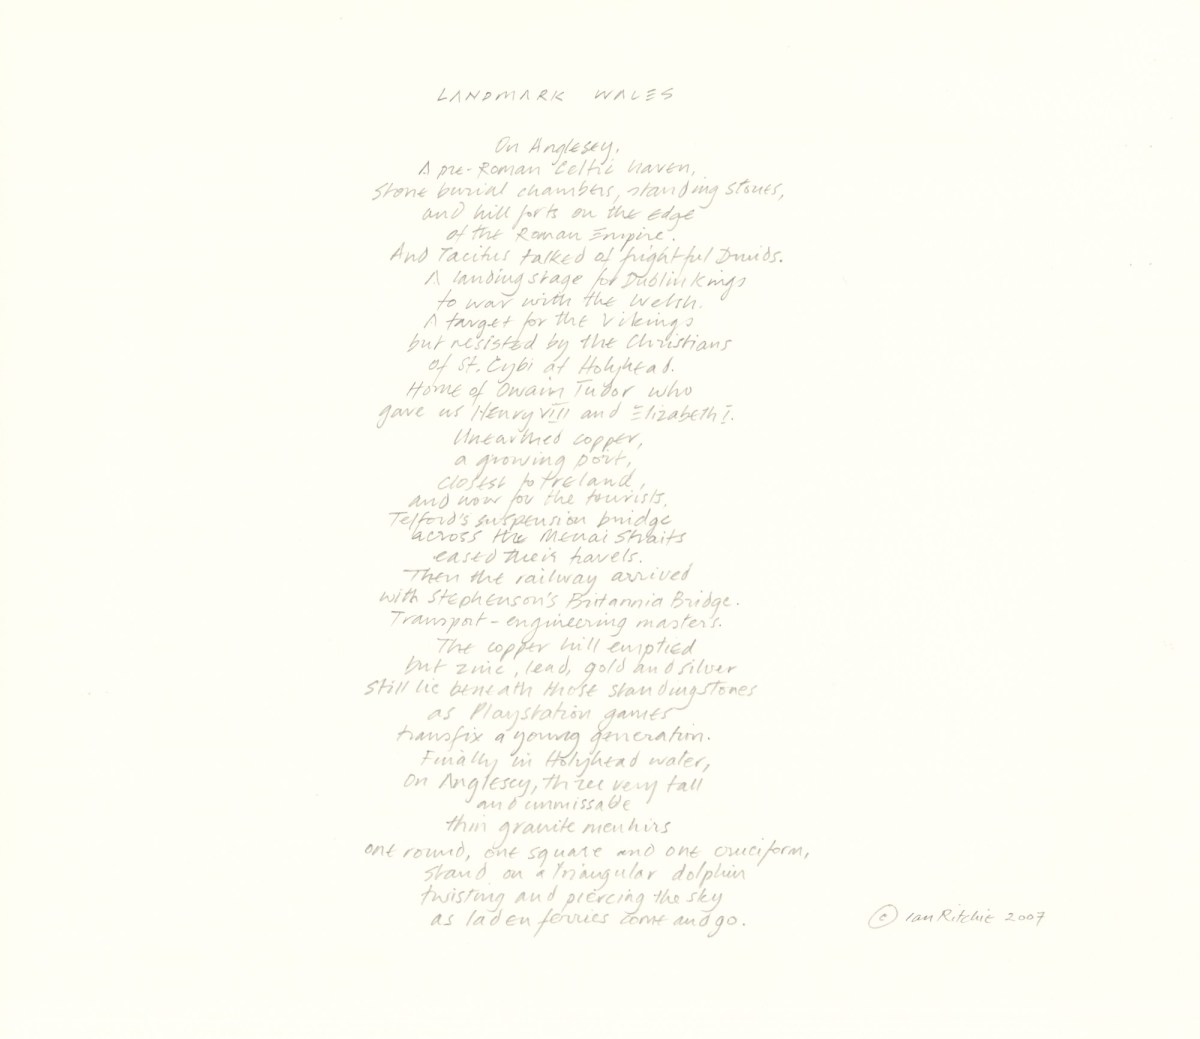 LANDMARK WALES
On Anglesey,
A pre-Roman Celtic haven,
Stone burial chambers, standing stones,
and hill forts on the edge
of the Roman Empire.
And Tacitus talked of frightful Druids.
A landing stage for Dublin Kings
to war with the Welsh.
A target for the Vikings
but resisted by the Christians
of St. Cybi at Holyhead.
Home of Owain Tudor who
gave us Henry VIII and Elizabeth I.
Unearthed copper,
a growing port,
closest to Ireland,
and now for the tourists.
Telford's suspension bridge
across the Menai Straits
eased their travels.
Then the railway arrived
with Stephenson's Britannia Bridge.
Transport-engineering masters.
The copper hill emptied
but zinc, lead, gold and silver
still lie beneath those standing stones
as Playstation games
transfix a young generation.
Finally in Holyhead water,
On Anglesey, three very tall
and unmissable
thin granite menhirs
one round, one square and one cruciform,
stand on a triangular dolphin
twisting and piercing the sky
as laden ferries come and go.
© Ian Ritchie 2007